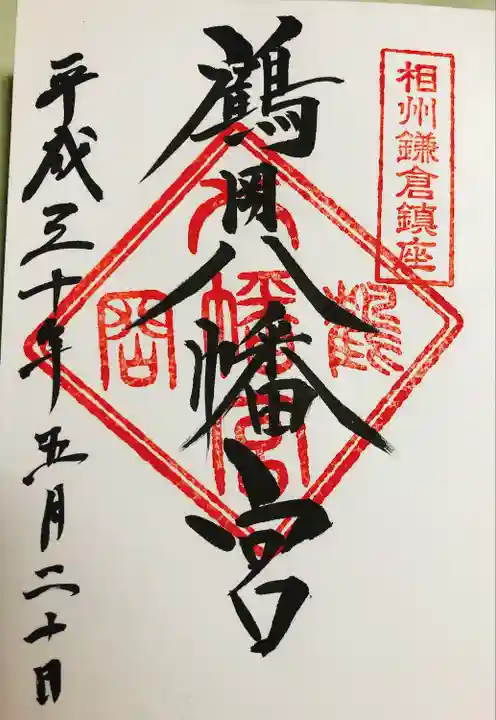 相州鎌倉鎮座
鶴岡八幡宮
鶴岡八幡宮
平成三十年五月二十日